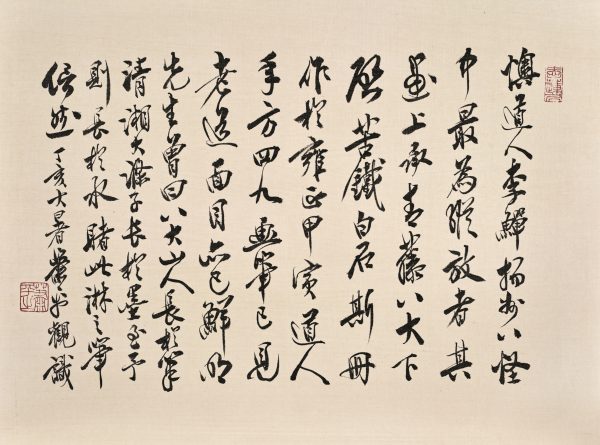 懊道人李鱓揚州八怪
中最為縱放者其
畫上承青藤八大下
啟苦鐵白石斯冊
作於雍正甲寅道人
年方四九畫筆已見
老逸面目亦已鮮明
先生曾曰八大山人長於筆
清湘大滌子長於墨至予
則長於水睹此淋之筆
信然丁亥大暑蕭平觀識